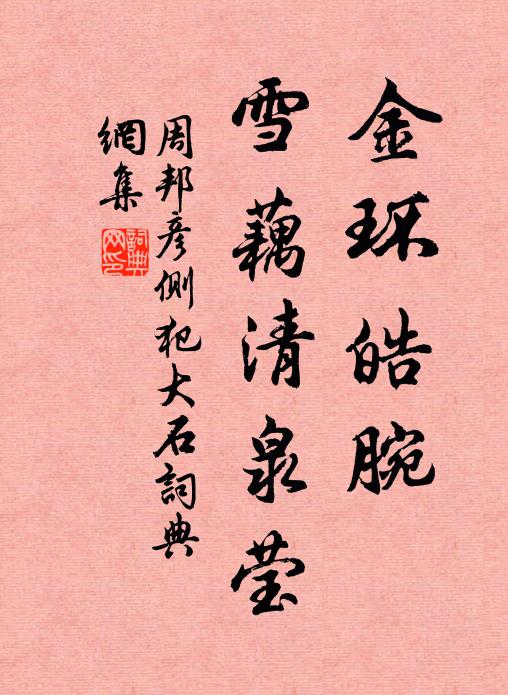 金环皓腕
雪藕清泉莹
周邦彦側犯大石詞典
網集
詞典
网印